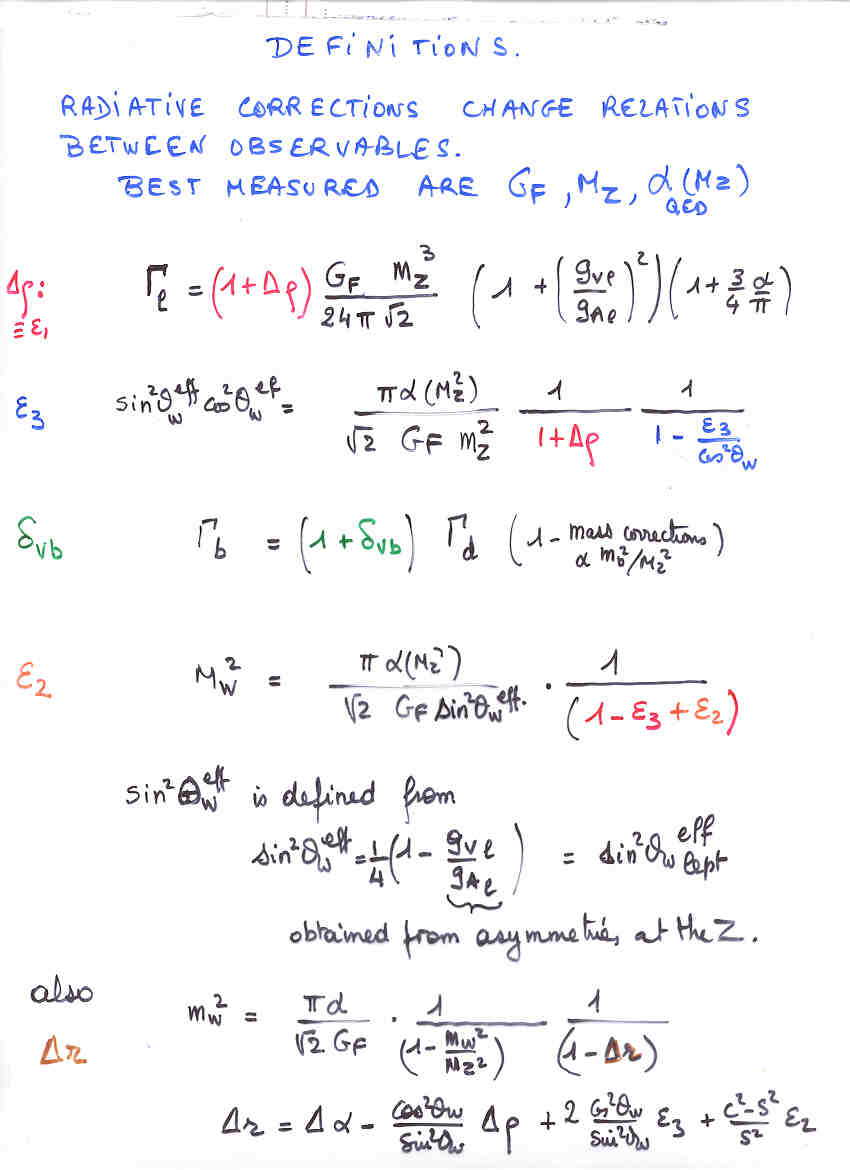 DEFINITIONS.
RADIATIVE CORRECTIONS CHANGE RELATIONS
BETWEEN OBSERVABLES.
BEST MEASURED ARE G_F, M_Z, α(M_Z)
QED
Δρ: Γ_ℓ = (1+Δρ) G_F m_Z^3 / 24π√2 (1 + (g_Vℓ / g_Aℓ)^2)(1 + 3/4 α/π)
≡ε_1
ε_3 sin^2θ_w^eff cos^2θ_w^eff = πα(M_Z^2) / √2 G_F m_Z^2 1 / 1+Δρ 1 / 1 - ε_3/cos^2θ_w
δ_vb Γ_b = (1 + δ_vb) Γ_d (1 - mass corrections)
∝ m_b^2/M_Z^2
ε_2 M_W^2 = πα(M_Z^2) / √2 G_F sin^2θ_w^eff. · 1 / (1 - ε_3 + ε_2)
sin^2θ_w^eff is defined from
sin^2θ_w^eff = 1/4 (1 - g_Vℓ / g_Aℓ) = sin^2θ_w^eff lept
obtained from asymmetries at the Z.
also m_W^2 = πα / √2 G_F · 1 / (1 - M_W^2/M_Z^2) 1 / (1 - Δr)
Δr
Δr = Δα - cos^2θ_w / sin^2θ_w Δρ + 2 cos^2θ_w / sin^2θ_w ε_3 + c^2-s^2 / s^2 ε_2